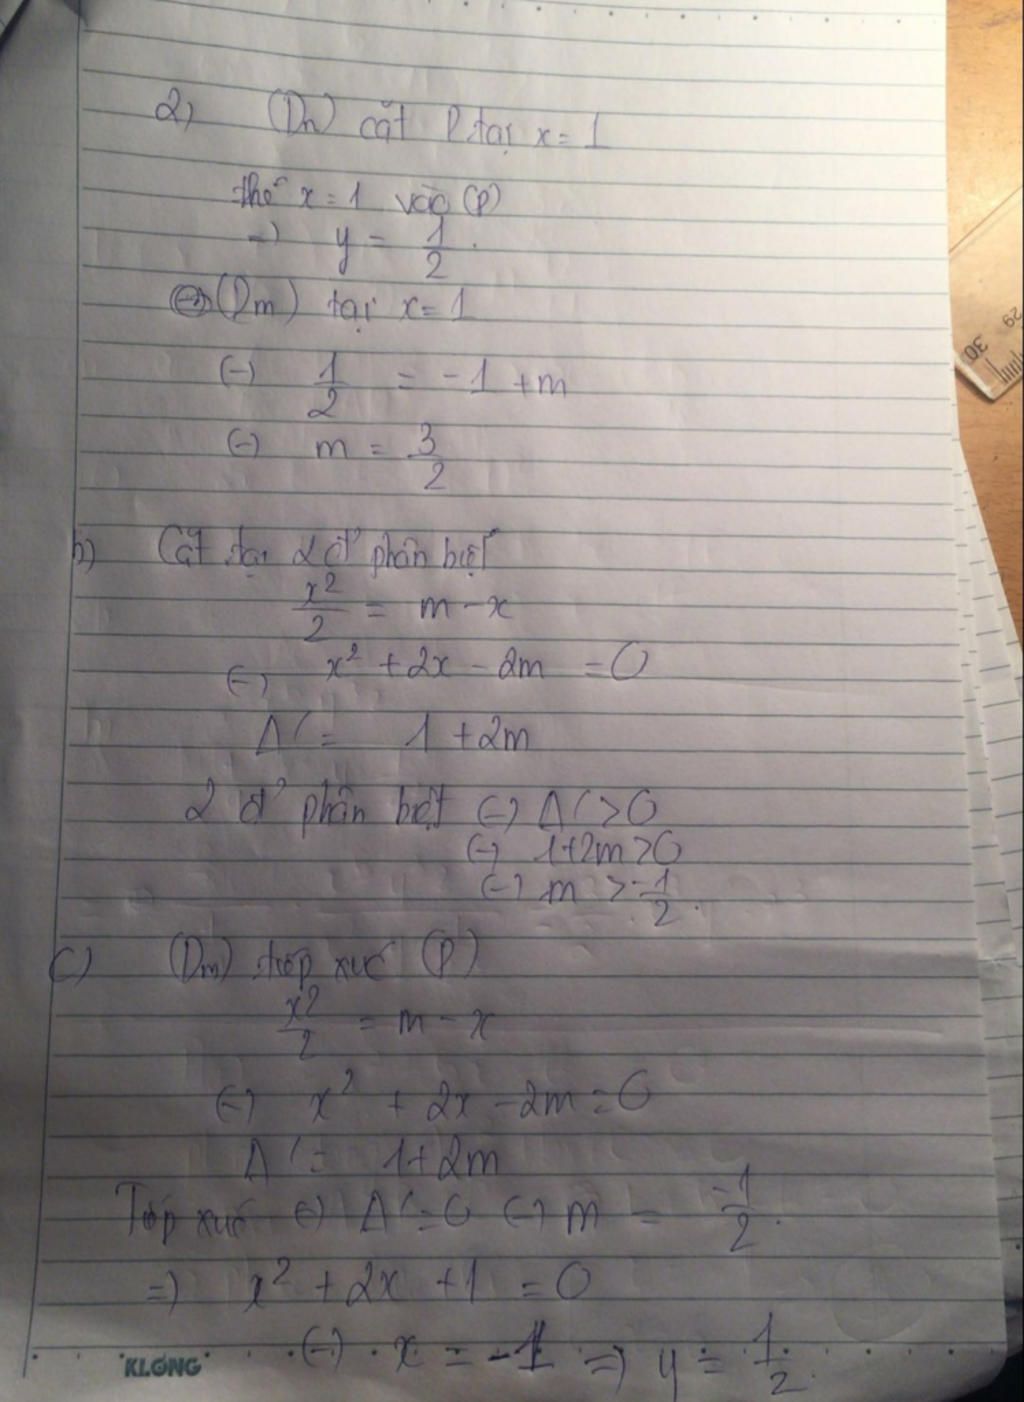 2) (Dm) cắt P tại x = 1
thế x = 1 vào (P)
=> y = 1/2.
<=> (Dm) tại x = 1
<=> 1/2 = -1 + m
<=> m = 3/2
b) Cắt tại 2 đ' phân biệt
x²/2 = m - x
<=> x² + 2x - 2m = 0
Δ' = 1 + 2m
2 đ' phân biệt <=> Δ' > 0
<=> 1+2m > 0
<=> m > -1/2.
c) (Dm) tiếp xúc (P)
x²/2 = m - x
<=> x² + 2x - 2m = 0
Δ' = 1+2m
Tiếp xúc <=> Δ' = 0 <=> m = -1/2.
=> x² + 2x + 1 = 0
<=> x = -1 => y = 1/2.
KLONG
30
29